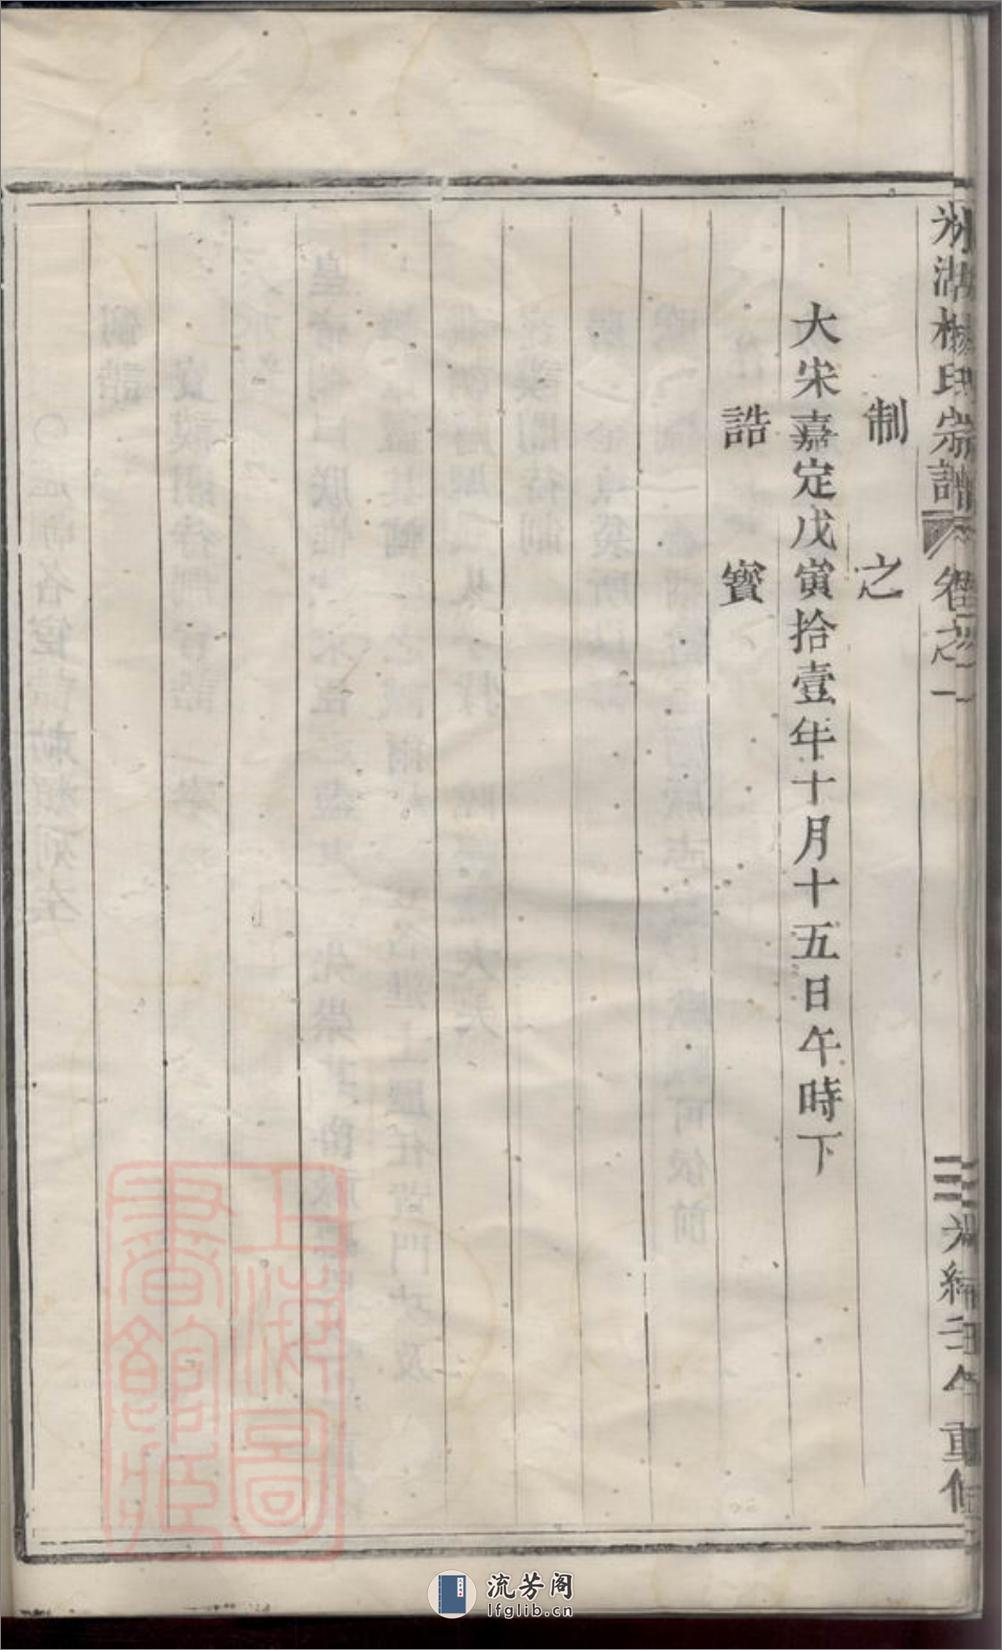 湖楊氏宗譜 卷之一 三 光緒壬午重修
制之
大宋嘉定戊寅拾壹年十月十五日午時下
誥寳
上海圖書館藏
流芳阁
lfglib.cn